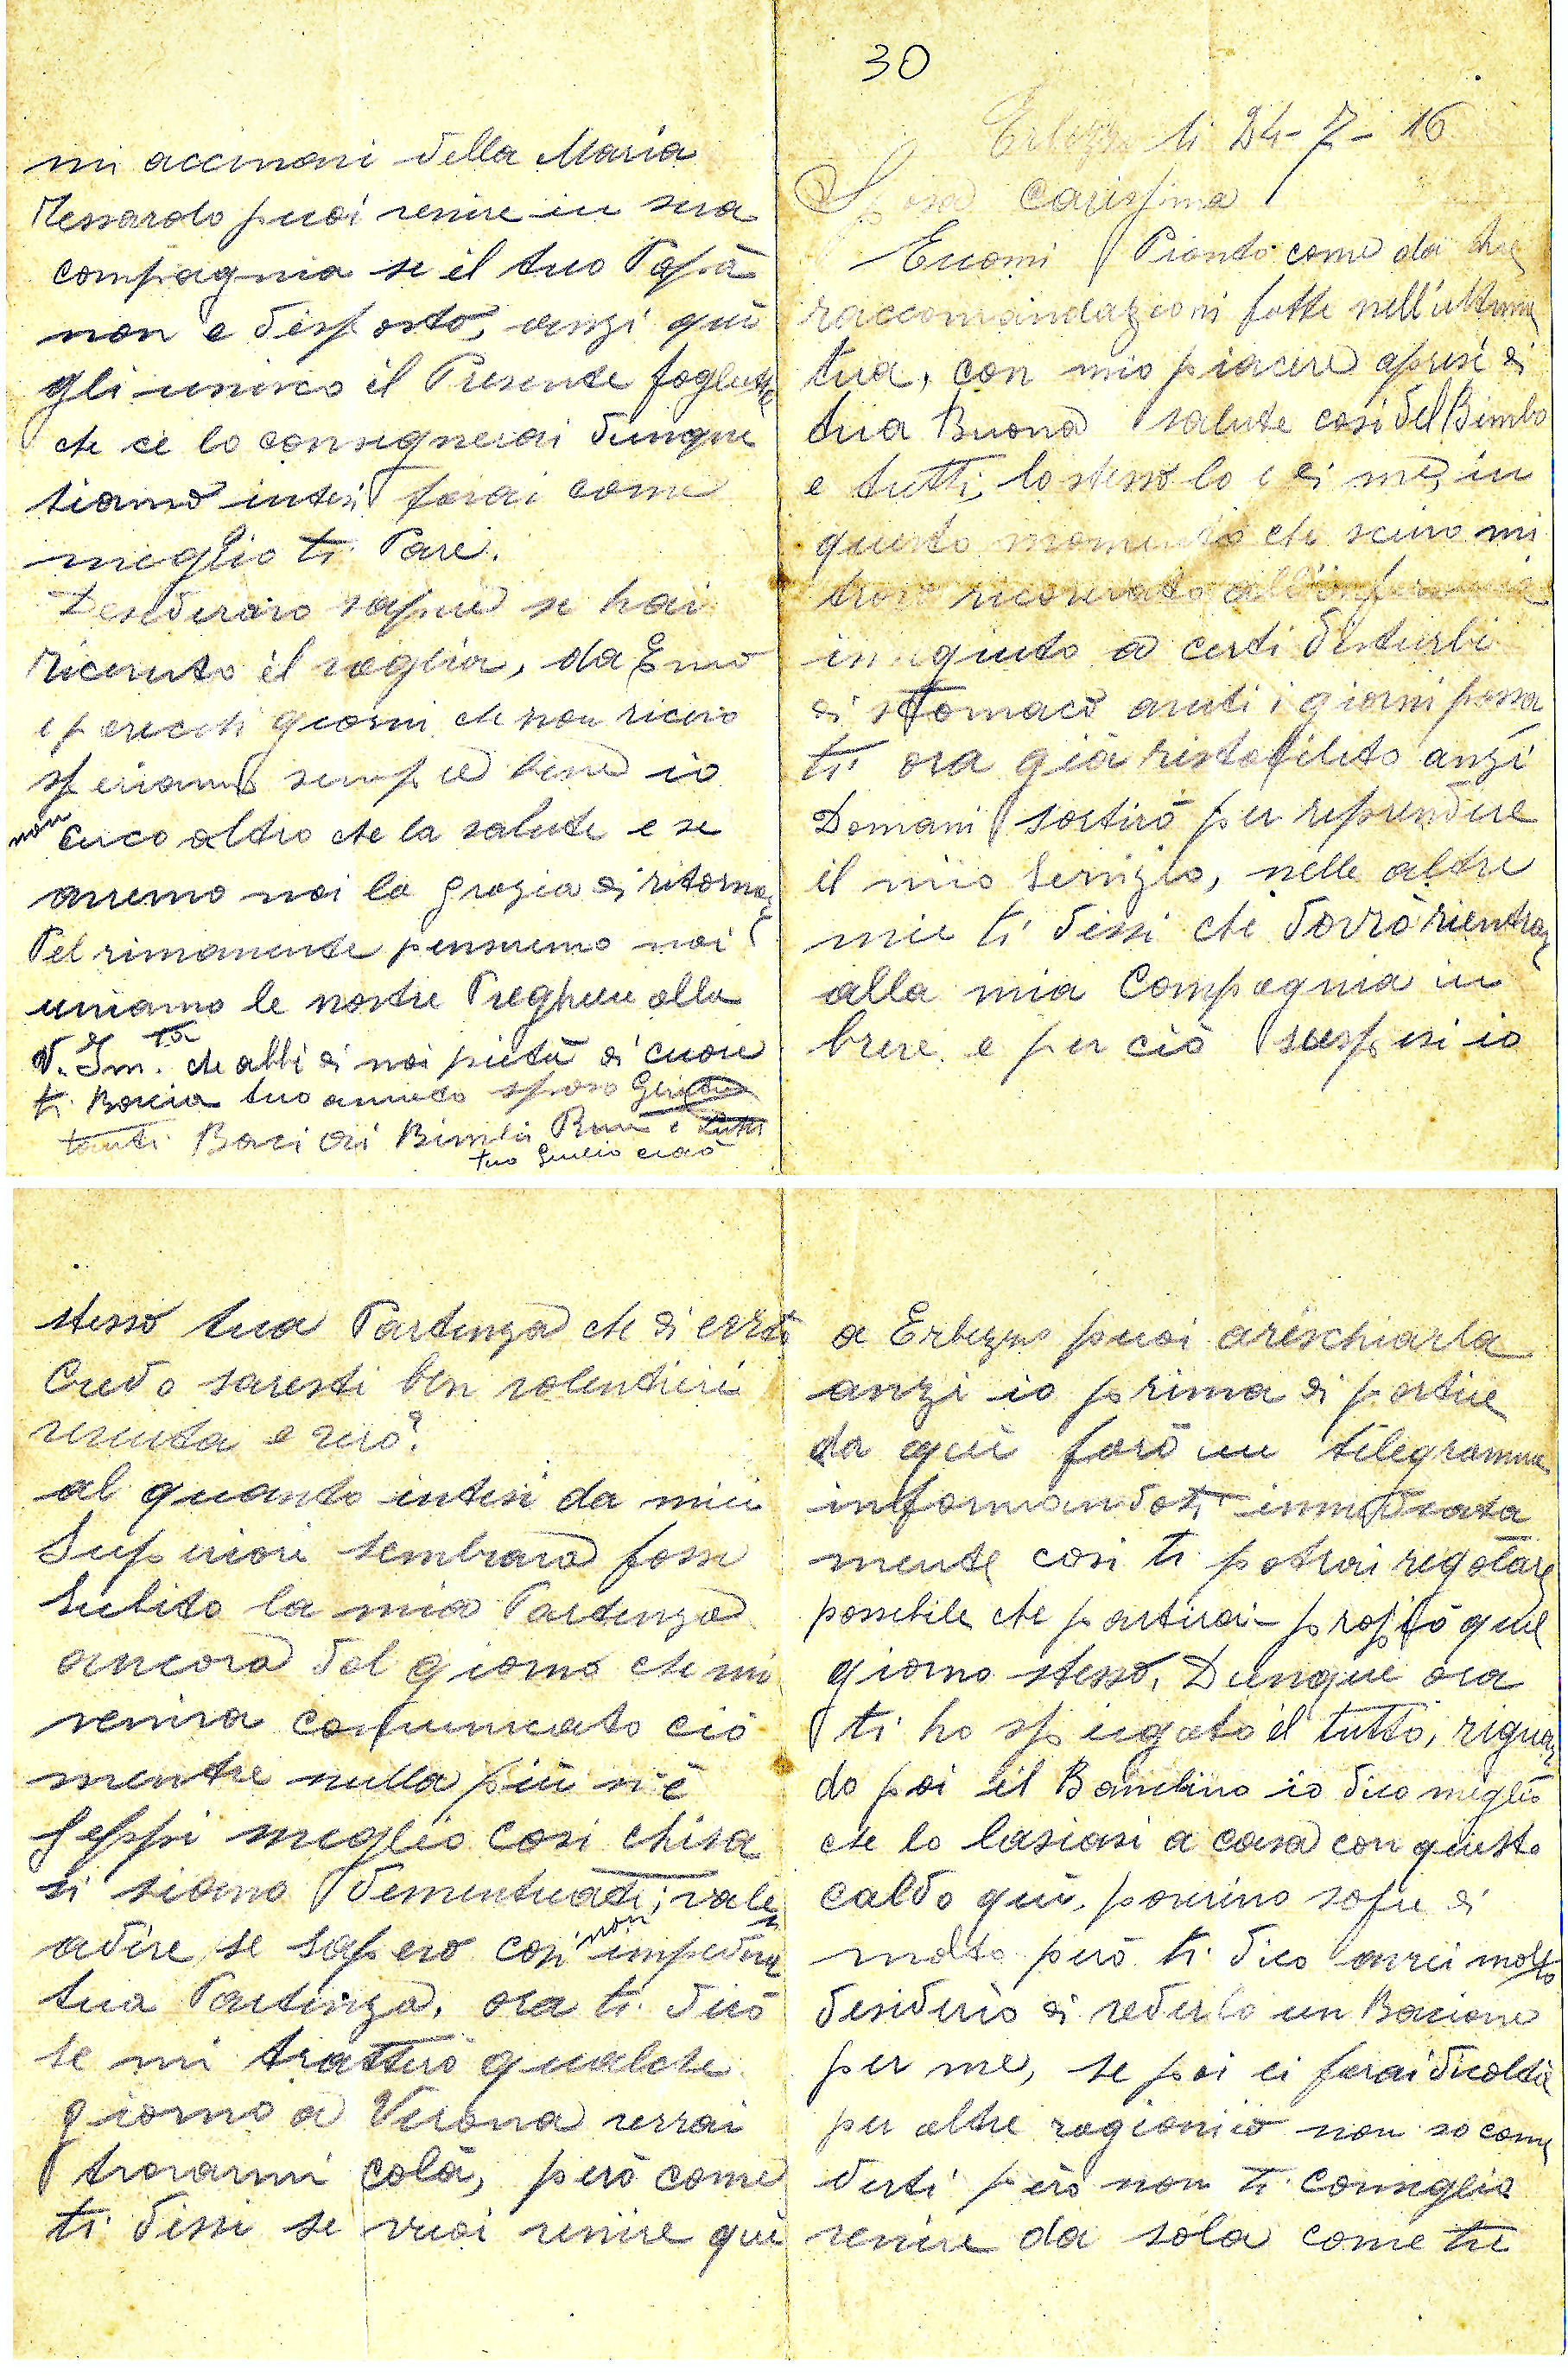 30
Erbezzo li 24-7-16
Sposa Carissima
Eccomi Pronto come da tue
raccomandazioni fatte nell'ultima
tua, con mio piacere apresi di
tua Buona salute cosi del Bimbo
e tutti, lo stesso lo e di me, in
questo momento che scrivo mi
trovo ricoverato all'infermeria
in seguito a certi disturbi
di stomaco avuti i giorni passa
ti ora già ristabilito anzi
Domani sortirò per reprendere
il mio Servizio, nelle altre
mie ti dissi che dovrò rientrar
alla mia Compagnia in
breve e per ciò suspesi io
stesso tua Partenza che di certo
Credo saresti ben volentieri
venuta e vero?
al quanto intesi da miei
Superiori sembrava fosse
Subito la mia Partenza
ancora dal giorno che mi
veniva comunicato ciò
mentre nulla più n'è
seppi meglio Cosi chisa
si siano dementicati, vale
adire se sapevo cosi non impediva
tua Partenza, ora ti dirò
se mi tratterò qualche
giorno a Verona verrai
trovarmi colà, però come
ti dissi se vuoi venire qui
a Erbezzo puoi arischiarla
anzi io prima di partire
da qui farò un telegramma
informandoti immediata
mente cosi ti potrai regolare
possibile che partirai proprio quel
giorno stesso. Dunque ora
ti ho spiegato il tutto, riguar
do poi il Bambino io dico meglio
che lo lasiasi a casa con questo
caldo qui, poverino sofre di
molto però ti dico avrei molto
desiderio di vederlo un Bacione
per me, se poi ci farai dicoltà
per altre ragioni io non so come
dirti però non ti consiglio
venire da sola come tu
mi accinavi della Maria
Messarolo puoi venire in sua
compagnia se il tuo Papà
non e disposto, anzi quì
gli unisco il Presente foglietto
che ce lo consegnerai dunque
siamo intesi farai come
meglio ti Pare.
Desideravo sapere se hai
ricevuto il vaglia, da Emo
e parecchi giorni che non ricevo
speriamo sempre bene io
non cerco altro che la salute e se
avremo noi la grazia di ritornar
Pel rimanente penseremo noi
uniamo le nostre Preghiere alla
V. Im.ta che abbi di noi pietà di cuore
ti Bacia tuo amico sposo Giulio
tanti Baci ai Bimbi e tutti
tuo Giulio ciao